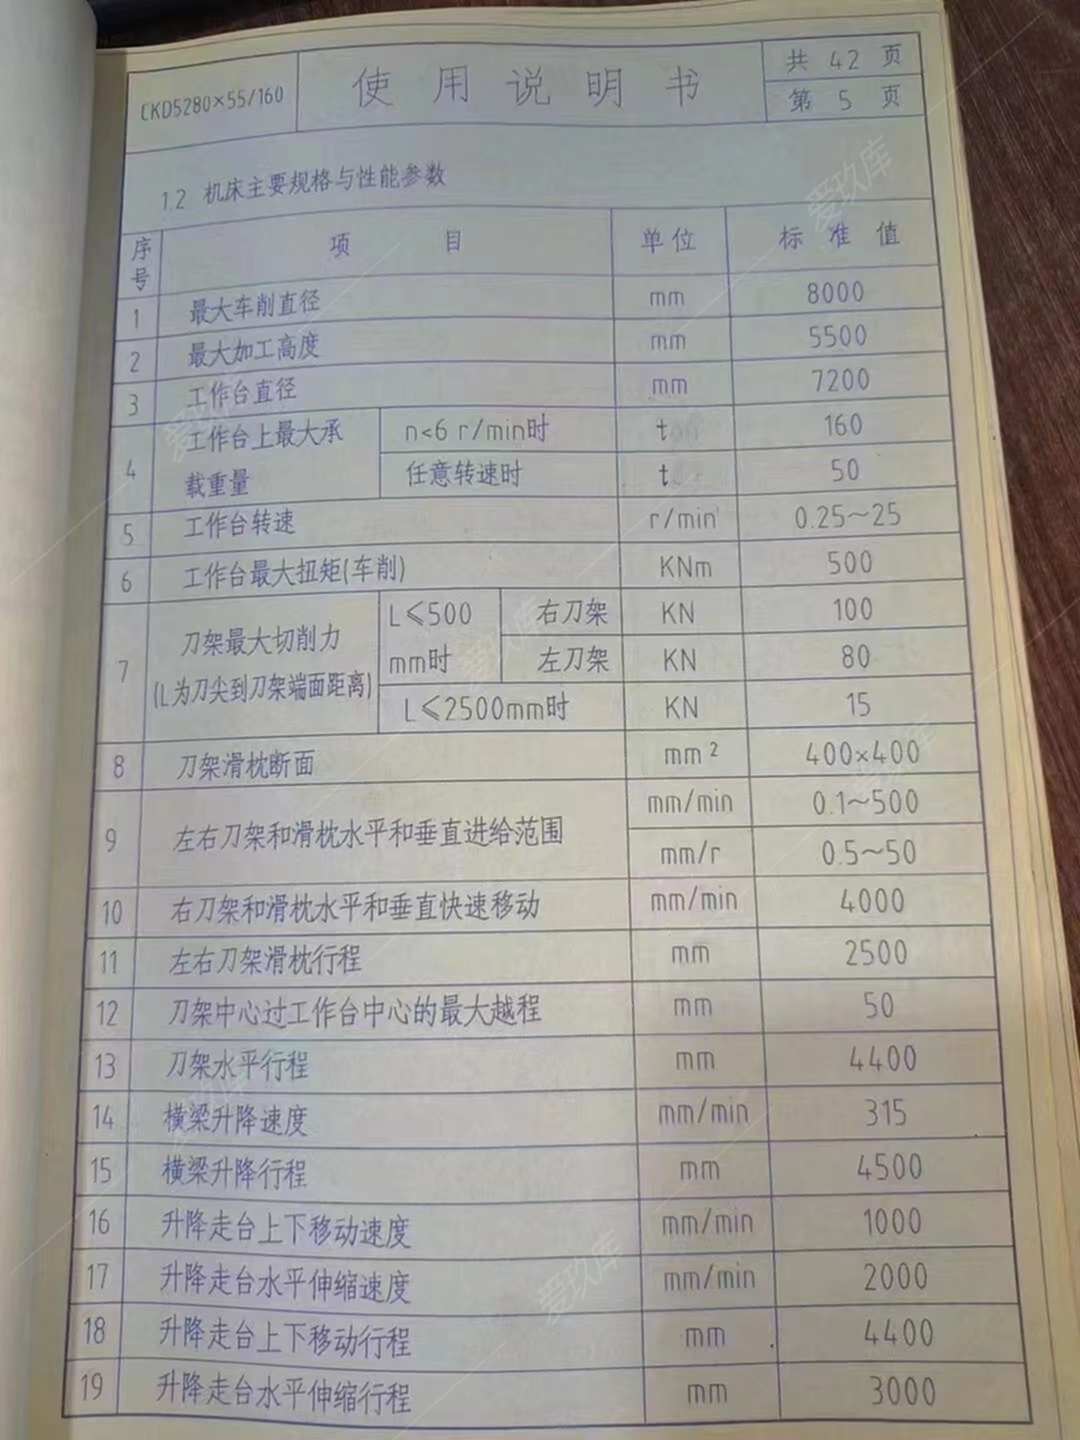 CKD5280×55/160
使用说明书
共 42 页
第 5 页
1.2 机床主要规格与性能参数
序号 项目 单位 标准值
1 最大车削直径 mm 8000
2 最大加工高度 mm 5500
3 工作台直径 mm 7200
4 工作台上最大承载重量 n<6 r/min时 t 160
任意转速时 t 50
5 工作台转速 r/min 0.25~25
6 工作台最大扭矩(车削) KNm 500
7 刀架最大切削力(L为刀尖到刀架端面距离) L≤500mm时 右刀架 KN 100
左刀架 KN 80
L≤2500mm时 KN 15
8 刀架滑枕断面 mm² 400×400
9 左右刀架和滑枕水平和垂直进给范围 mm/min 0.1~500
mm/r 0.5~50
10 右刀架和滑枕水平和垂直快速移动 mm/min 4000
11 左右刀架滑枕行程 mm 2500
12 刀架中心过工作台中心的最大越程 mm 50
13 刀架水平行程 mm 4400
14 横梁升降速度 mm/min 315
15 横梁升降行程 mm 4500
16 升降走台上下移动速度 mm/min 1000
17 升降走台水平伸缩速度 mm/min 2000
18 升降走台上下移动行程 mm 4400
19 升降走台水平伸缩行程 mm 3000
爱玖库
爱玖库
爱玖库
爱玖库
爱玖库
爱玖库